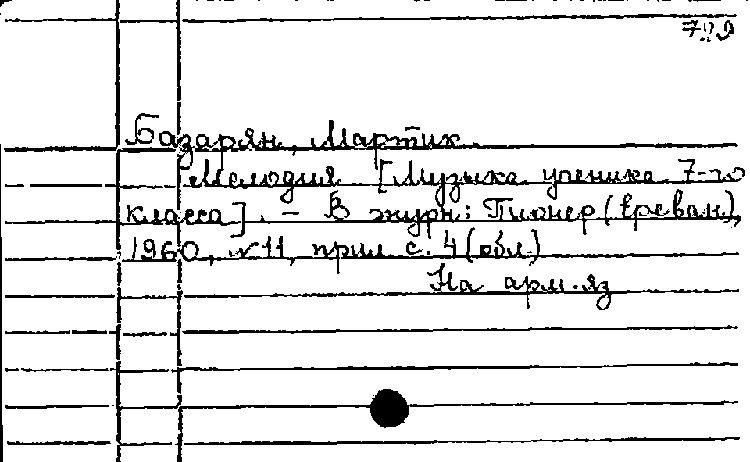 Базарян, Мартик.
Мелодия [Музыка ученика 7-го
класса]. - В журн: Пионер (Ереван),
1960, N 11, прил с. 4 (обл)
На арм. яз